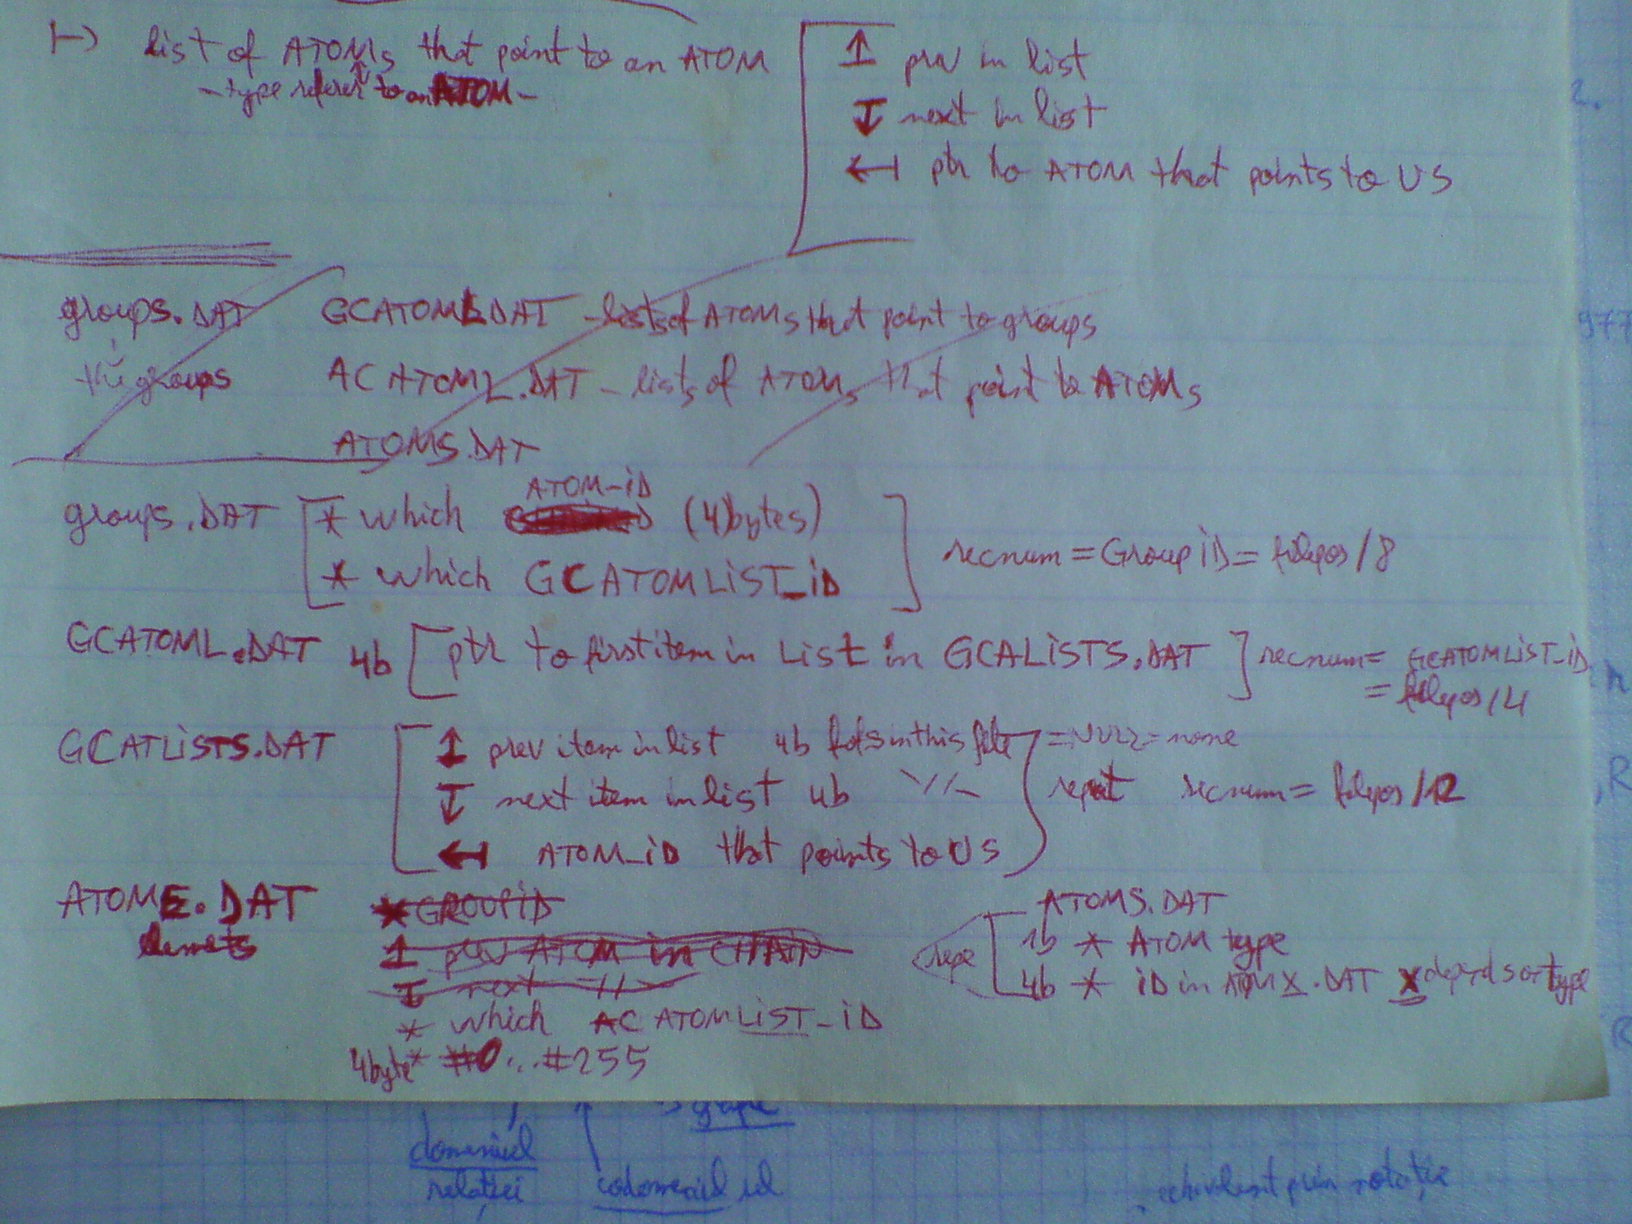 list of ATOMs that point to an ATOM
- type referer to an ATOM -
prev in list
next in list
ptr to ATOM that points to US
groups.DAT GCATOML.DAT - lists of ATOMs that point to groups
the groups ACATOML.DAT - lists of ATOMs that point to ATOMs
ATOMS.DAT
groups.DAT * which ATOM_iD (4bytes)
* which GCATOMLiST_iD
recnum = Group iD = filepos/8
GCATOML.DAT 4b [ptr to first item in List in GCALiSTS.DAT] recnum = GCATOMLiST_iD
= filepos/4
GCATLiSTS.DAT prev item in list 4b in this file =NULL=none
next item in list 4b -//- repeat recnum = filepos/12
ATOM_iD that points to US
ATOME.DAT *GROUPiD
lements prev ATOM in CHAIN
next -//-
* which ACATOMLiST_iD
4byte * #0...#255
ATOMS.DAT
1b * ATOM type
4b * iD in ATOMX.DAT X depends on type
domeniul
relației
codomeniul
echivalent prin rotație